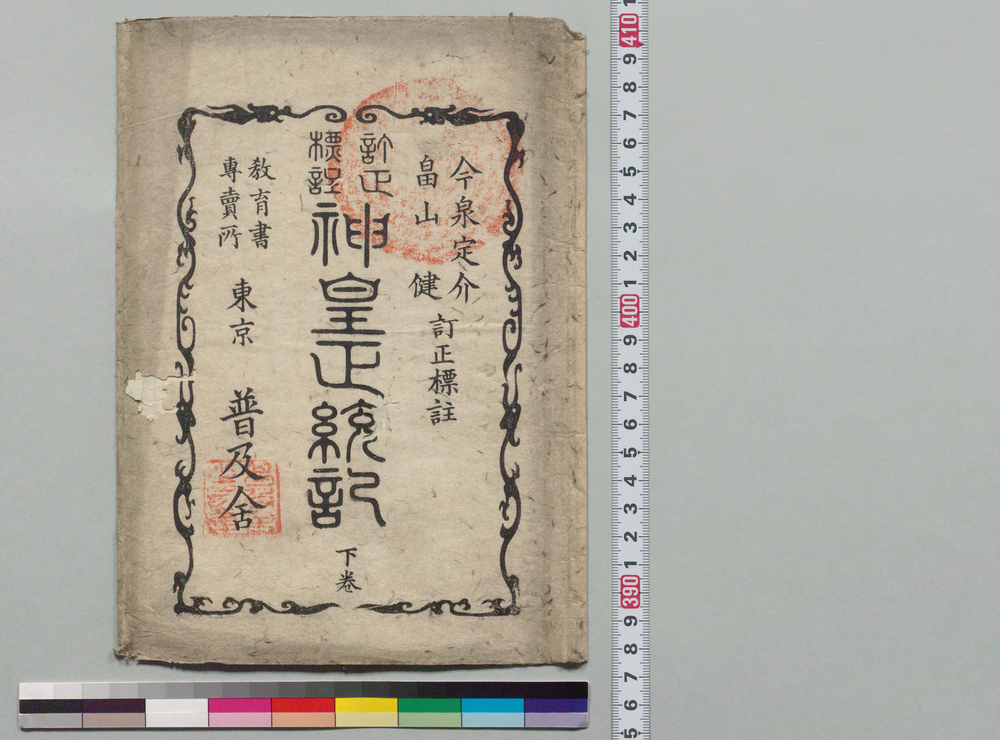 今泉定介
畠山健
訂正標註
訂正
標註
神皇正統記
下巻
教育書
専賣所
東京
普及舍
410
9
8
7
6
5
4
3
2
1
400
9
8
7
6
5
4
3
2
1
390
9
8
7
6
5